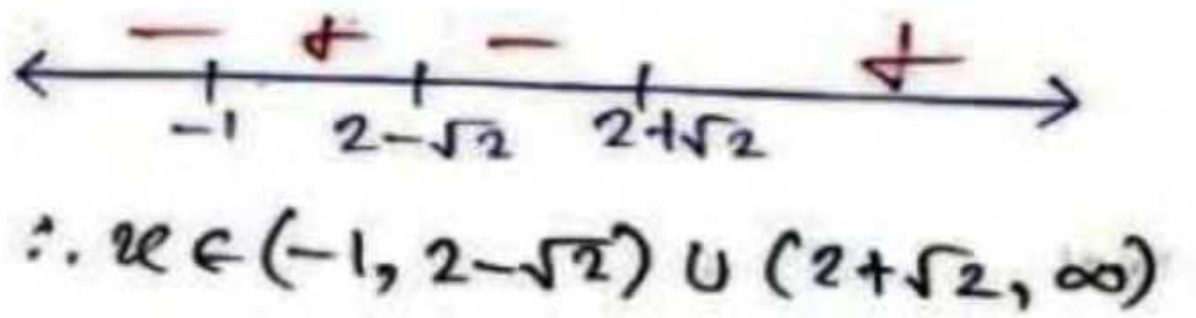 − + − +
-1 2-√2 2+√2
∴ x ∈ (-1, 2-√2) ∪ (2+√2, ∞)